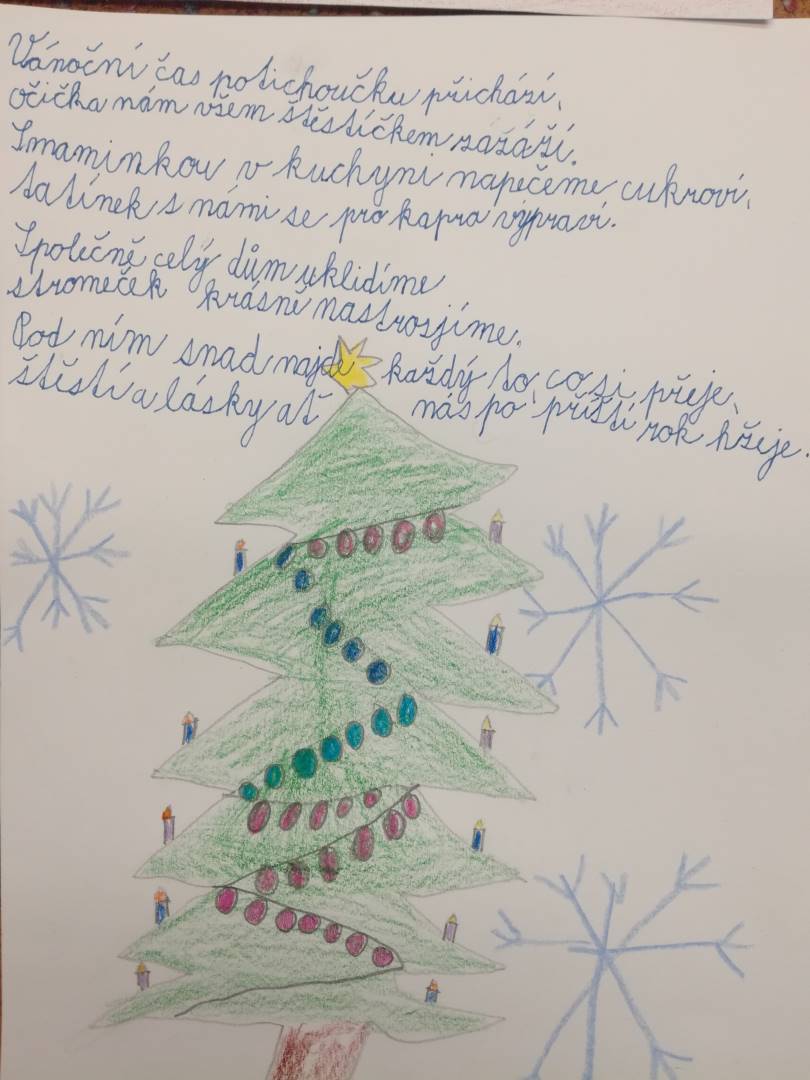 Vánoční čas potichoučku přichází,
očička nám všem štěstíčkem zazáží.
Smaminkou v kuchyni napečeme cukroví,
tatínek s námi se pro kapra výpraví.
Společně celý dům uklidíme
stromeček krásně nastrosjíme.
Pod ním snad najde každý to, co si přeje,
štěstí a lásky ať nás po příští rok hžeje.